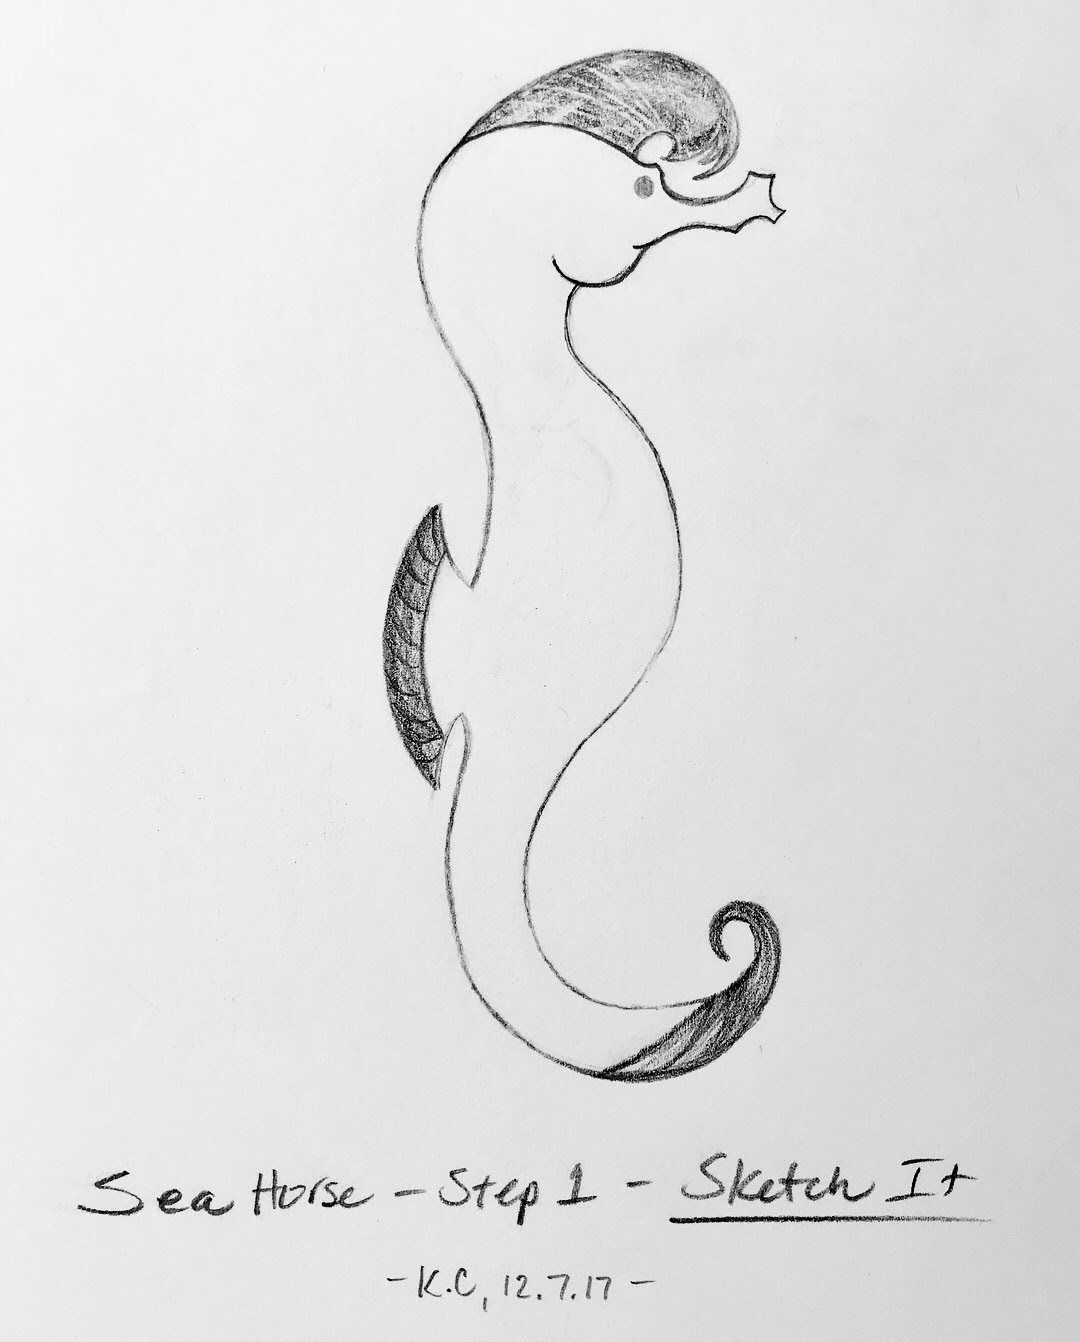 Sea Horse - Step 1 - Sketch It
- K.C, 12.7.17 -